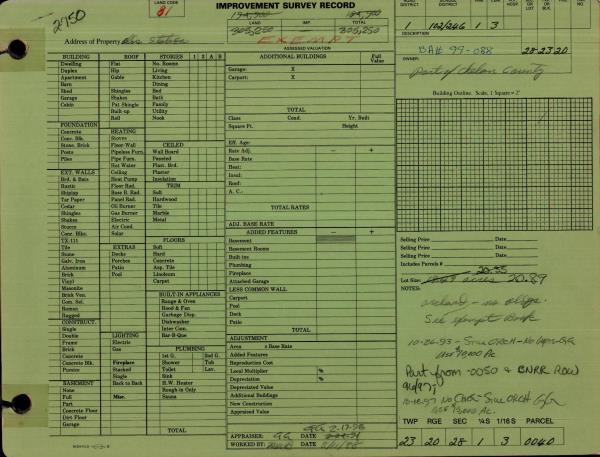 2750
LAND CODE
81
IMPROVEMENT SURVEY RECORD
LAND IMP. TOTAL
305,250 305,250
EXEMPT
ASSESSED VALUATION
Address of Property
DISTRICT
1 102/246 1 3
DESCRIPTION
BA# 99-088 28-23 20
OWNER:
Port of Chelan County
Building Outline. Scale, 1 Square = 2'
BUILDING ROOF STORIES 1 2 A B
Dwelling Flat No. Rooms
Duplex Hip Living
Apartment Gable Kitchen
Barn Dining
Shed Shingles Bed
Garage Shakes Bath
Cabin Pat. Shingle Family
Built-up Utility
Roll Nook
FOUNDATION
Concrete HEATING
Conc. Blk. Stoves
Stone, Brick Floor-Wall CEILED
Posts Pipeless Furn. Wall Board
Piles Pipe Furn. Paneled
Hot Water Plast. Brd.
EXT. WALLS Ceiling Plaster
Brd. & Bats Heat Pump Insulation
Rustic Floor Rad. TRIM
Shiplap Base B. Rad. Soft
Tar Paper Panel Rad. Hardwood
Cedar Oil Burner Tile
Shingles Gas Burner Marble
Shakes Electric Metal
Stucco Air Cond.
Conc. Blks. Solar
TX-111 FLOORS
Tile EXTRAS Soft
Stone Decks Hard
Galv. Iron Porches Concrete
Aluminum Patio Asp. Tile
Brick Pool Linoleum
Vinyl Carpet
Masonite
Brick Ven. BUILT-IN APPLIANCES
Com. Sd. Range & Oven
Roman Hood & Fan
Rugged Garbage Disp.
CONSTRUCT. Dishwasher
Single Inter Com.
Double LIGHTING Bar-B-Que
Frame Electric
Brick Gas PLUMBING
Concrete 1st G. 2nd G.
Concrete Blk. Fireplace Shower Tub
Pumice Stacked Toilet Lav.
Single Sink
BASEMENT Back to Back H.W. Heater
None Rough-in Only
Full Misc. Sauna
Part
Concrete Floor
Dirt Floor
Garage TOTAL
ADDITIONAL BUILDINGS Full Value
Garage: X
Carport: X
TOTAL
Class Cond. Yr. Built
Square Ft. Height
Eff. Age:
Rate Adj. − +
Base Rate
Heat:
Insul:
Roof:
A. C.:
TOTAL RATES
ADJ. BASE RATE
ADDED FEATURES − +
Basement
Basement Rooms
Built-ins
Plumbing
Fireplace
Attached Garage
LESS COMMON WALL
Carport
Pool
Deck
Patio
TOTAL
ADJUSTMENT
Area x Base Rate
Added Features
Reproduction Cost
Local Multiplier %
Depreciation %
Depreciated Value
Additional Buildings
New Construction
Appraised Value
GG 2-17-98
APPRAISER: GG DATE
WORKED BY: DATE
Selling Price Date
Selling Price Date
Selling Price Date
Includes Parcels #
20.35
Lot Size: acres 20.89
NOTES:
orchard - no bldgs.
See Exempt Book
10-26-93 - Still ORCH - No
Use 10,000 Ac
Part from -0050 & BNRR ROW
96/97
10-16-97 No CHGE - Still ORCH GG
Ac.
TWP RGE SEC 1/4S 1/16S PARCEL
23 20 28 1 3 0040